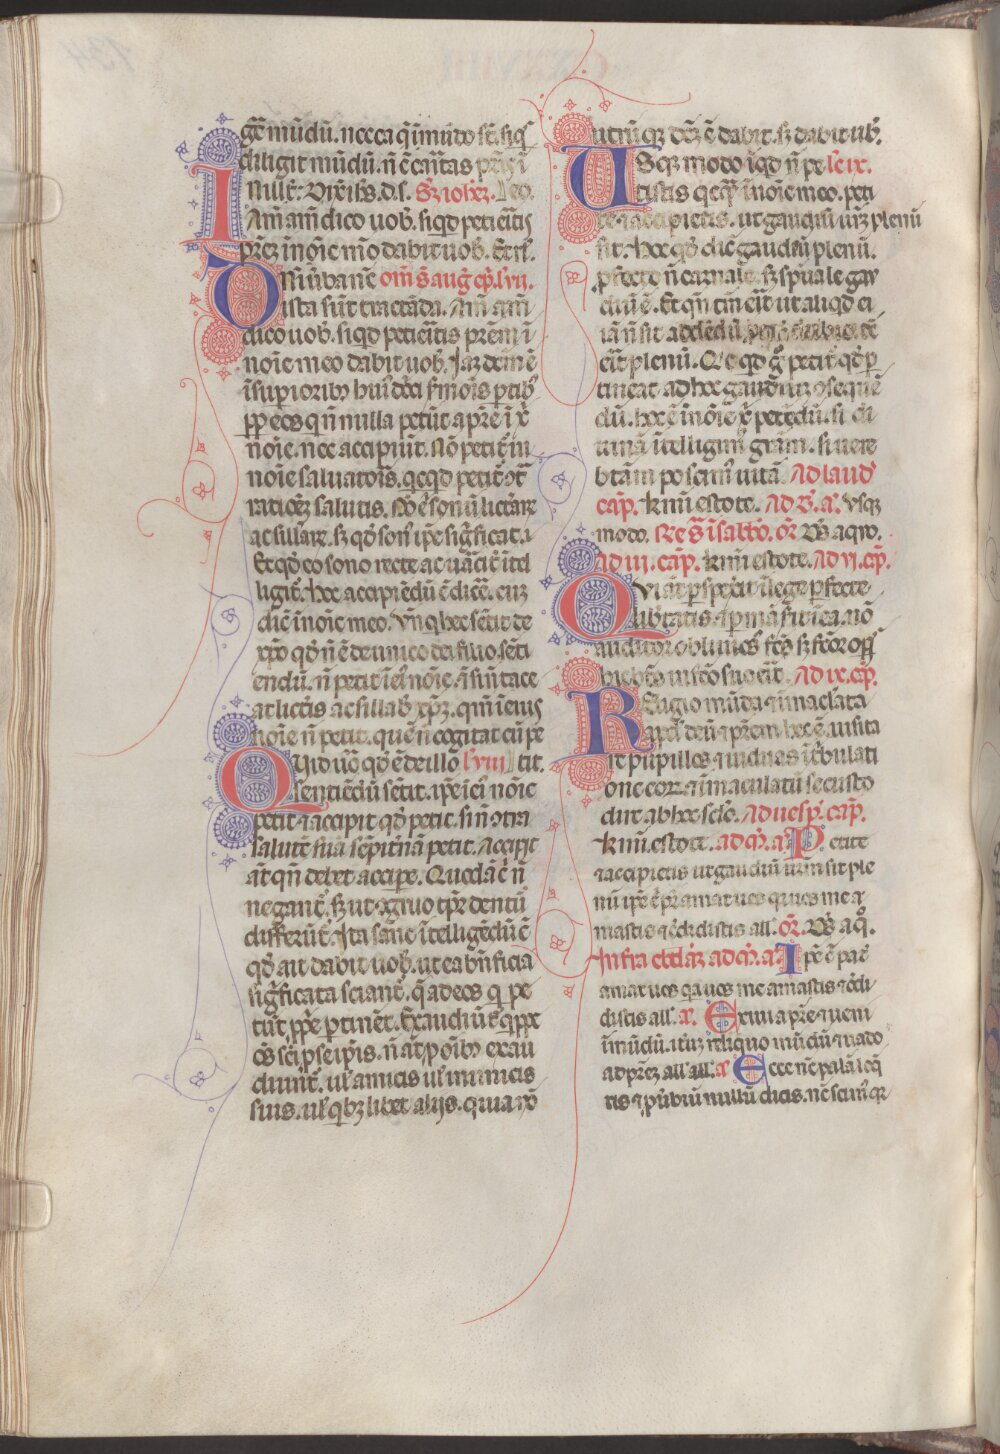 gē mūdū. nec ea q̄ ī mūdo st̄. siqͥs
diligit mūdū. n̄ ē caritas pr̄is ī
In illo t̄. Dix̄ ihs̄. d. s. Sz̄ ioħez. leo.
Am̄ am̄ dico uob̄. siqͥd petieritis
pr̄ez ī noīe m̄o dabit uob̄. Et rl̄.
Dn̄i ūba n̄c om̄. s̄. aug̃. ep̄i. lvii.
ista sūt tractāda. Am̄ am̄
dico uob̄. siqͥd petieritis prēm ī
noīe meo dabit uob̄. Iaz dcm̄ ē
ī supioribꝰ huiꝰ dn̄ici sermoīs ptibꝰ
pp eos qͥ n̄nulla petūt a pr̄e ī xp̄i
noīe. nec accipiūt. Nō petit̄ in
noīe saluatoīs. qcqͥd petit̄
rationez salutis. No ē sonū lictāꝝ
ac sillabaꝝ. sz qd̄ son̄ ip̄e sig̃ficat. ⁊
Et qd̄ eo sono recte ac uacit̄ ītel
ligit̄. hoc accipiēdū ē dicē. cuz
dic̄ ī noīe meo. Vn̄ q̄ hec sētit de
xp̄o qd̄ n̄ ē de unico dei filio sēti
endū. n̄ petit ī eiꝰ noīe. ⁊ si n̄ tace
at lictis ac sillab̄ xp̄z. qm̄ ī eiꝰ
noīe n̄ petit. quē n̄ cogitat cū pe
Quid uō qd̄ ē de illo lviii tit.
sentiēdū sētit. ip̄e ī eiꝰ noīe
petit ⁊ accipit qd̄ petit. si n̄ ꝯtra
salutē suā sēpit̄nā petit. Accipit
at̄ qn̄ debet accipe. Quedā ē n̄
negant̄. sz ut ꝯgruo tp̄e dentur
differūt̄. Ita sane ītelligēdū ē
qd̄ ait dabit uob̄. ut ea bn̄ficia
sig̃ficata sciant̄. q̄ ad eos q̄ pe
tūt. ppe ptinēt. Exaudiūt̄ qppe
oēs sc̄i p seip̄is. n̄ at̄ p oībꝰ exau
diunt̄. ul̄ amicis ul̄ inimicis
suis. ul̄ qbꝰ libet alijs. quia nō
utcūqz dc̄z ē dabit. sz dabit ub̄.
Usqz modo īqͥd n̄ pe le ix.
tistis qcqͣ in noīe meo. peti
te ⁊ accipietis. ut gaudiū ur̄z plenū
sit. hoc qd̄ dic̄ gaudiū plenū.
pfecto n̄ carnale. sz spūale gau
diū ē. Et qn̄ tm̄ erit ut aliqͥd ei
iā n̄ sit addēdū
erit plenū. Qͥcqͥd g̊ petit̄ qd̄ p
tineat ad hoc gaudiūz ꝯsequē
dū. hoc ē ī noīe xp̄i petēdū. si di
uinā ītelligimꝰ grām. si uere
btām poscimꝰ uitā. Ad laud̄
cap̄. karm̄i estote. Ad b. a. Vsqz
modo. Re s̄ ī sal'to. or̄. Ds̄ a quo.
Ad iii. cap̄. karm̄i estote. Ad vi. cap̄.
Qui at̄ pspexit ī lege pfecte
libtatis. ⁊ pmāserit ī ea. nō
auditor obliuiosꝰ fcs̄ sz fctor opis
hic bt̄us ī fcō suo erit. Ad ix. cap̄.
Religio mūda ⁊ īmaclata
apud deū ⁊ prēm hec ē. uisita
re pupillos ⁊ uiduas ī tbulati
one eoꝝ. ⁊ īmaculatū se custo
dire ab hoc sclō. Ad uesp̄. cap̄.
karm̄i. estote. ad m̄. a. Petite
⁊ accipietis ut gaudiū ur̄m sit ple
nū ip̄e .n. pr̄ amat uos quia uos me a
mastis ⁊ c̄didistis all'. or̄. Ds̄ a q̊.
Infra ebdāz ad m̄. a. Ip̄e .n. pat̄
amat uos q̄a uos me amastis ⁊ c̄di
distis all'. a. Exiui a pr̄e ⁊ ueni
ī mūdū. ituz relinquo mūdū ⁊ uado
ad prēz all' all'. a Ecce nc̄ palā loq̄
ris ⁊ puībiū nullū dicis. nc̄ scimꝰ qͣ